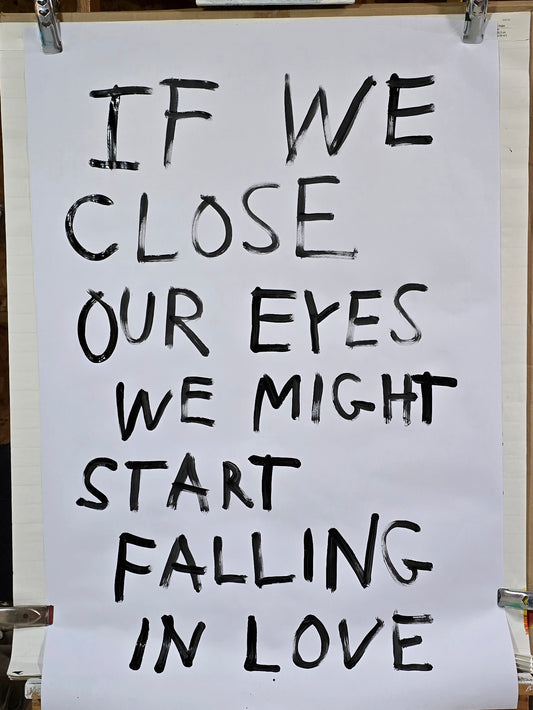 IF WE
CLOSE
OUR EYES
WE MIGHT
START
FALLING
IN LOVE